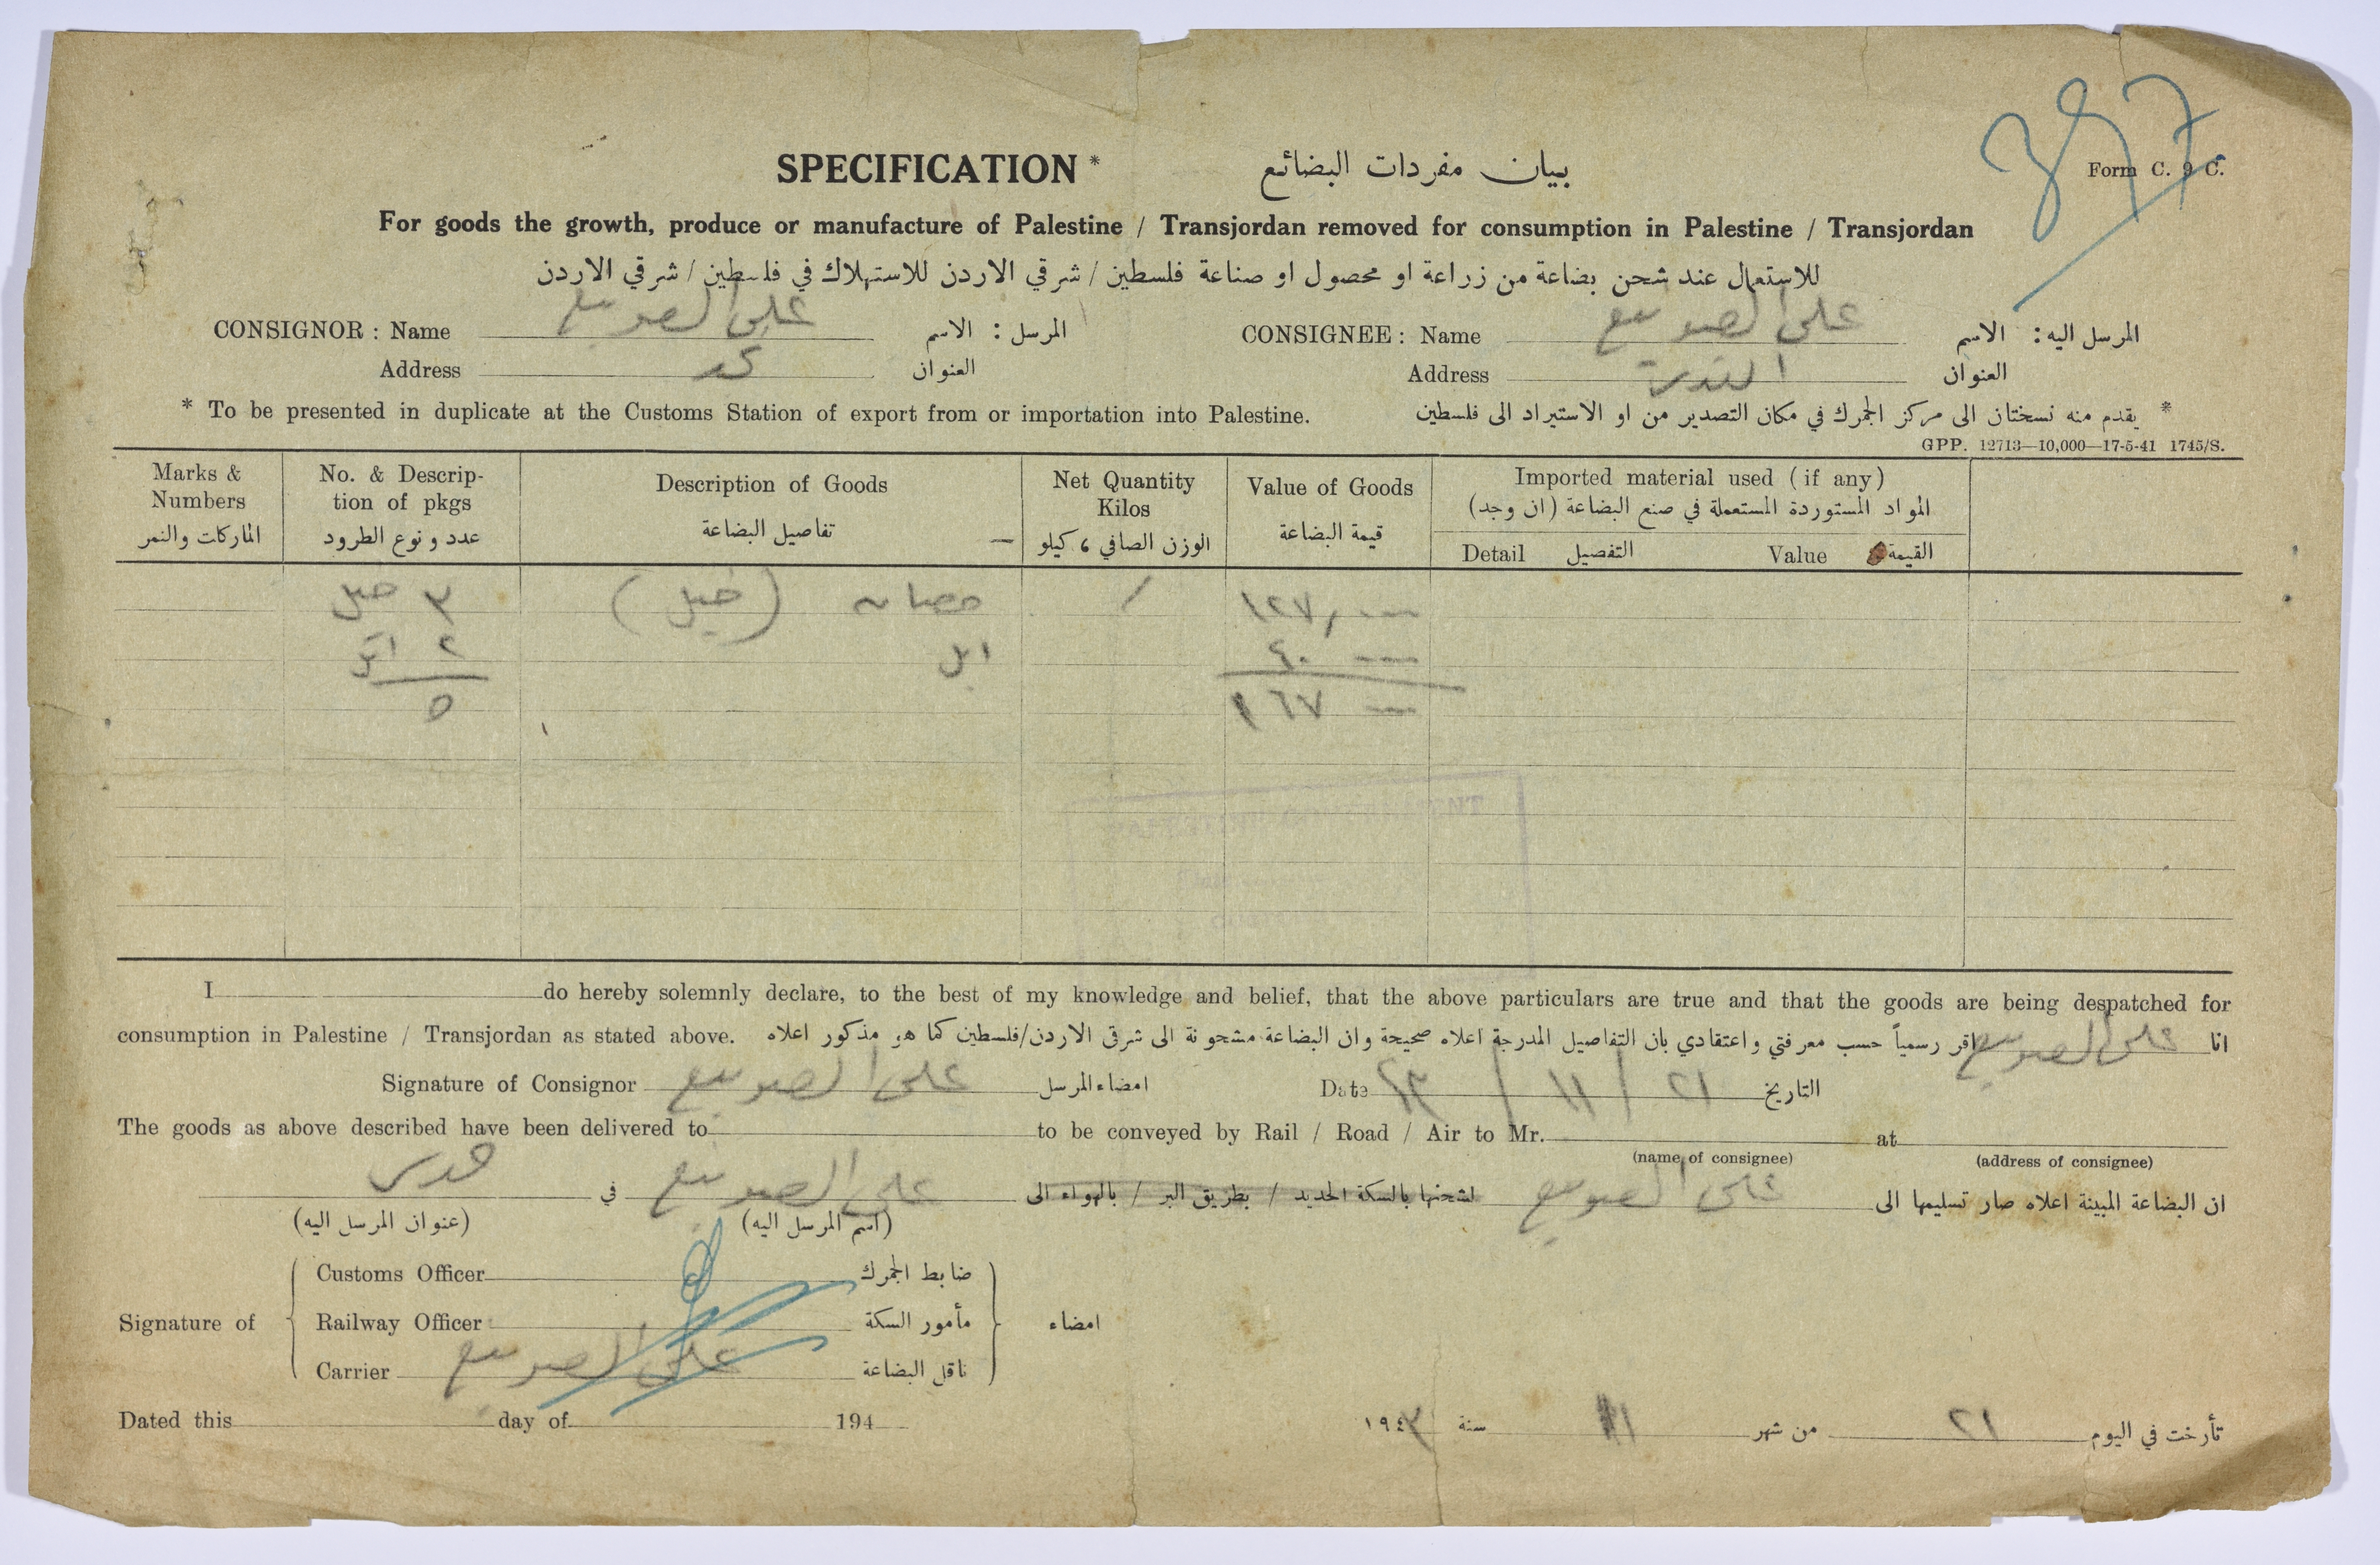 397
Form C. 9 C.
SPECIFICATION * بيان مفردات البضائع
For goods the growth, produce or manufacture of Palestine / Transjordan removed for consumption in Palestine / Transjordan
للاستعمال عند شحن بضاعة من زراعة او محصول او صناعة فلسطين / شرقي الاردن للاستهلاك في فلسطين / شرقي الاردن
CONSIGNOR : Name على الصويع المرسل : الاسم CONSIGNEE : Name على الصويع المرسل اليه : الاسم
Address العنوان Address القدس العنوان
* To be presented in duplicate at the Customs Station of export from or importation into Palestine. * يقدم منه نسختان الى مركز الجمرك في مكان التصدير من او الاستيراد الى فلسطين
GPP. 12713—10,000—17-5-41 1745/S.
Marks & Numbers الماركات والنمر
No. & Description of pkgs عدد و نوع الطرود
Description of Goods تفاصيل البضاعة
Net Quantity Kilos الوزن الصافي ، كيلو
Value of Goods قيمة البضاعة
Imported material used (if any) المواد المستوردة المستعملة في صنع البضاعة (ان وجد)
Detail التفصيل Value القيمة
٣ خيل حصان (خيل) / ١٢٧,---
٢ ابل ٤٠ ---
٥ ١٦٧ ---
I do hereby solemnly declare, to the best of my knowledge and belief, that the above particulars are true and that the goods are being despatched for
consumption in Palestine / Transjordan as stated above. انا على الصويع اقر رسمياً حسب معرفتي واعتقادي بان التفاصيل المدرجة اعلاه صحيحة وان البضاعة مشحونة الى شرقي الاردن/فلسطين كما هو مذكور اعلاه
Signature of Consignor على الصويع امضاء المرسل Date ٢١ / ١١ / ٤٣ التاريخ
The goods as above described have been delivered to to be conveyed by Rail / Road / Air to Mr. at
(name of consignee) (address of consignee)
ان البضاعة المبينة اعلاه صار تسليمها الى على الصويع لشحنها بالسكة الحديد / بطريق البر / بالهواء الى على الصويع في قدس
(اسم المرسل اليه) (عنوان المرسل اليه)
Signature of
Customs Officer ضابط الجمرك
Railway Officer مأمور السكة
Carrier على الصويع ناقل البضاعة
امضاء
Dated this day of 194 تأرخت في اليوم ٢١ من شهر ١١ سنة ١٩٤٣